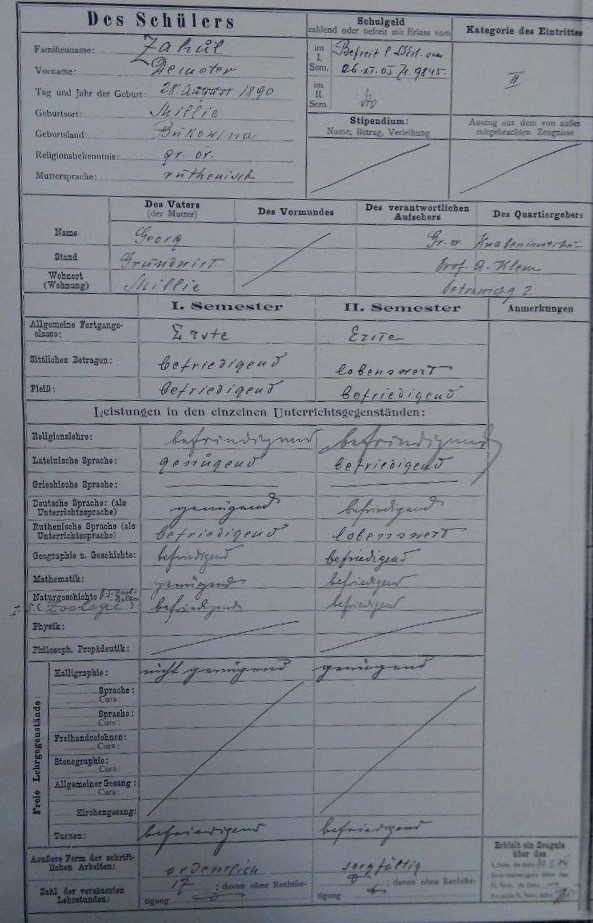 Des Schülers
Familienname: Zahul
Vorname: Demeter
Tag und Jahr der Geburt: 28 August 1890
Geburtsort: Millie
Geburtsland: Bukowina
Religionsbekenntnis: gr. or.
Muttersprache: ruthenisch
Schulgeld
zahlend oder befreit mit Erlass vom
im I. Sem. Befreit
26. XI. 05 Z. 9845.
im II. Sem.
Stipendium:
Name, Betrag, Verleihung
Kategorie des Eintrittes
II
Auszug aus dem von außen mitgebrachten Zeugnisse
Des Vaters (der Mutter) Des Vormundes Des verantwortlichen Aufsehers Des Quartiergebers
Name Georg Gr. or.
Stand Grundwirt Prof. A. Klem
Wohnort (Wohnung) Millie 2
I. Semester II. Semester Anmerkungen
Allgemeine Fortgangsclasse: Erste Erste
Sittliches Betragen: befriedigend lobenswert
Fleiß: befriedigend befriedigend
Leistungen in den einzelnen Unterrichtsgegenständen:
Religionslehre: befriedigend befriedigend
Lateinische Sprache: genügend befriedigend
Griechische Sprache:
Deutsche Sprache: (als Unterrichtssprache) genügend befriedigend
Ruthenische Sprache (als Unterrichtssprache) befriedigend lobenswert
Geographie u. Geschichte: befriedigend befriedigend
Mathematik: genügend befriedigend
Naturgeschichte
(Zoologie) befriedigend befriedigend
Physik:
Philosoph. Propädeutik:
Freie Lehrgegenstände:
Kalligraphie: nicht genügend genügend
Sprache:
Curs:
Sprache:
Curs:
Freihandzeichnen:
Curs:
Stenographie:
Curs:
Allgemeiner Gesang:
Curs:
Kirchengesang:
Turnen: befriedigend befriedigend
Aeußere Form der schriftlichen Arbeiten: ordentlich sorgfältig
Zahl der versäumten Lehrstunden: 17 ; davon ohne Rechtfertigung 8 ; davon ohne Rechtfertigung
Erhielt ein Zeugnis über das